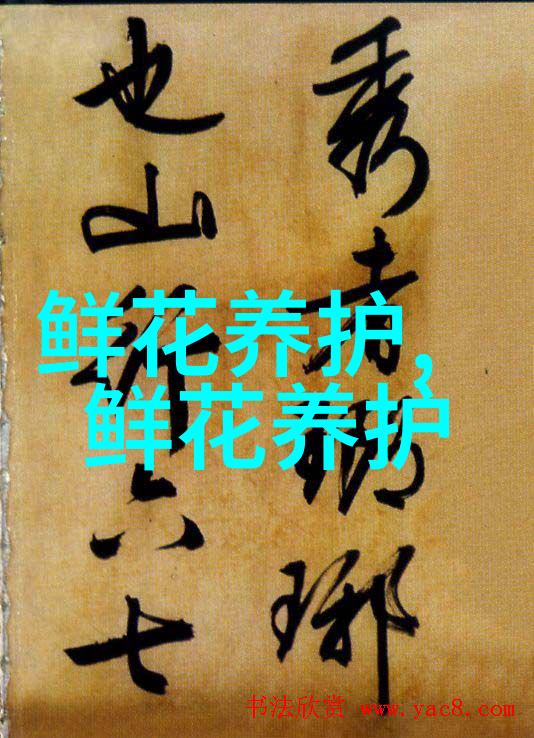 秀者瑯琊
也山行六七
鲜花养护,
鲜花养护
书法欣赏 www.yac8.com